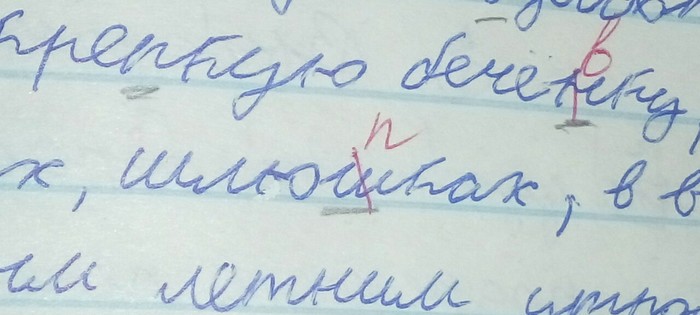 в
крепкую бечёнку,
п
х, шлюшках, в в
им летним утро